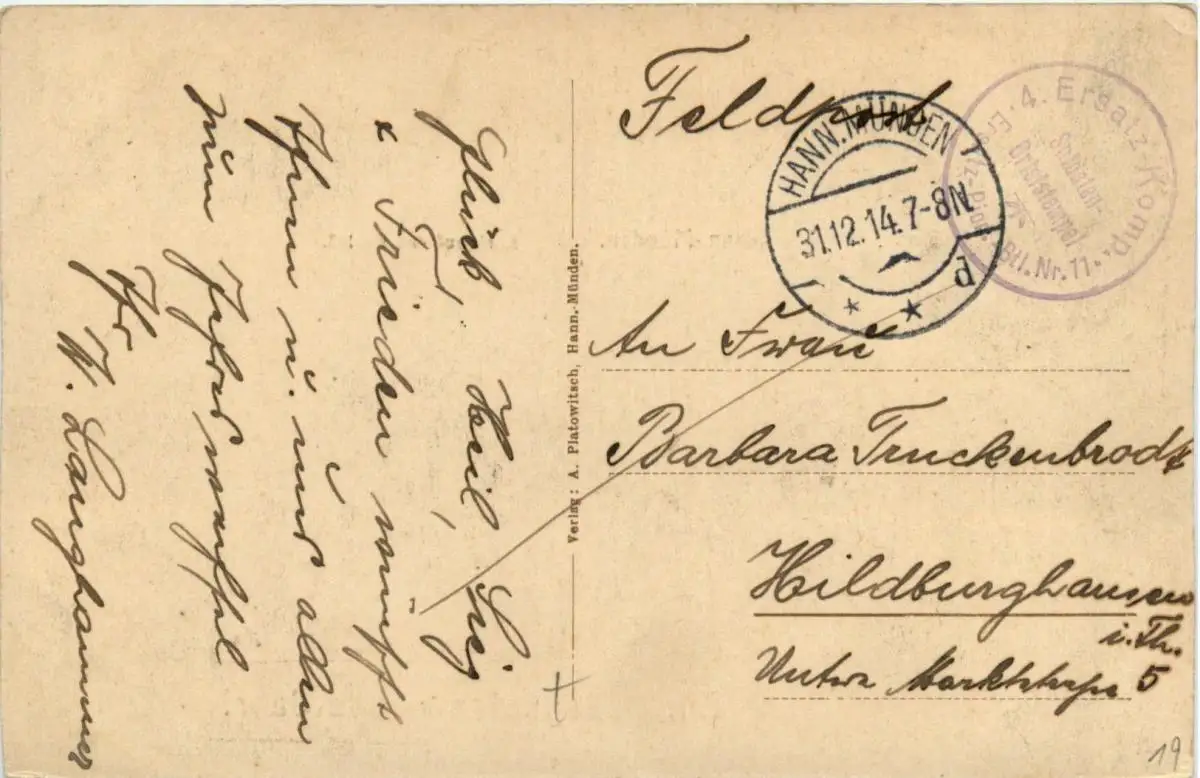 Glück, Heil, Sieg
& Frieden wünscht
Ihnen u. uns allen
zum Jahreswechsel
Ihr
W. Langhammer
Verlag: A. Platowitsch, Hann.-Münden.
Feldpost
HANN. MÜNDEN
31.12.14.7-8N.
d
4. Ersatz-Komp.
Ersatz-Pion. Btl. Nr. 11
Soldaten-
Briefstempel
An Frau
Barbara Truckenbrodt
Hildburghausen
i. Th.
Untere Marktstraße 5
19